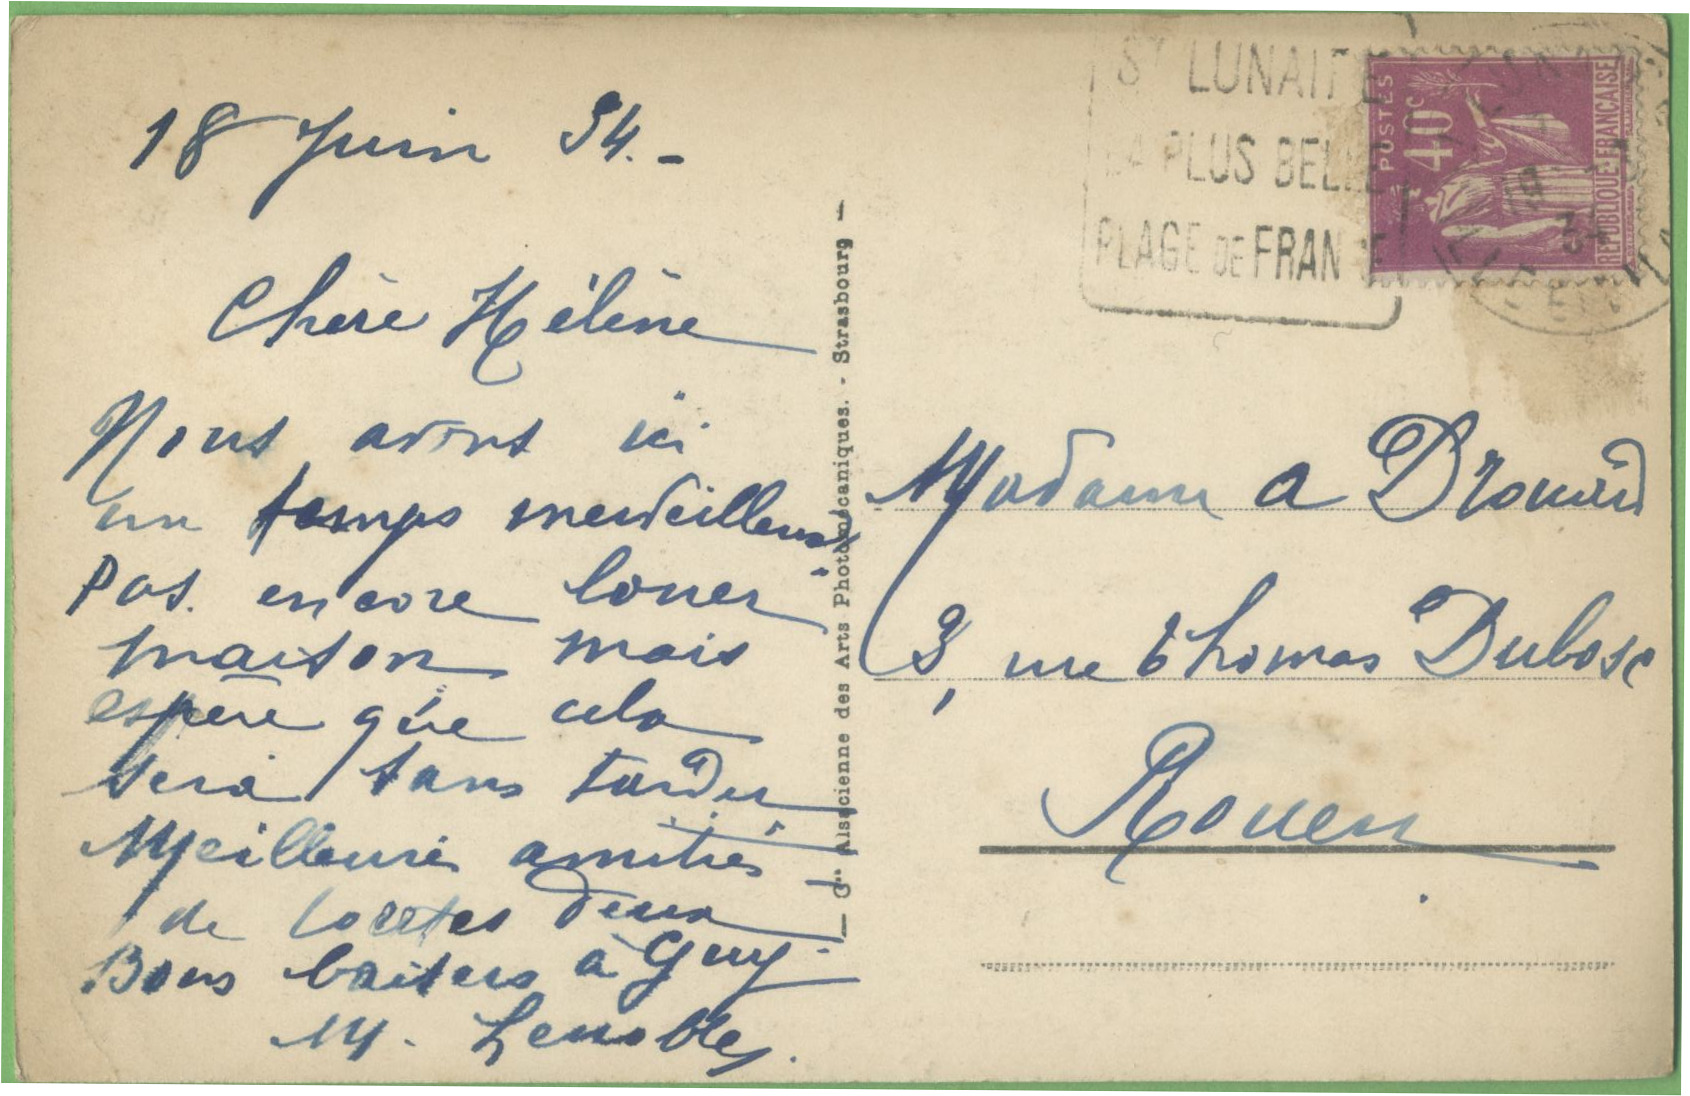 18 Juin 34.-
Chère Hélène
Nous avons ici
un temps merveilleux
Pas encore louer
maison mais
espère que cela
sera sans tarder
Meilleures amitiés
de toutes deux
Bons baisers à Guy.
M. Lenobley.
— Cie Alsacienne des Arts Photomécaniques. - Strasbourg —
ST LUNAIRE
LA PLUS BELLE
PLAGE DE FRANCE
POSTES
40c
REPUBLIQUE FRANCAISE
Madame A Drouard
3, rue Thomas Dubosc
Rouen